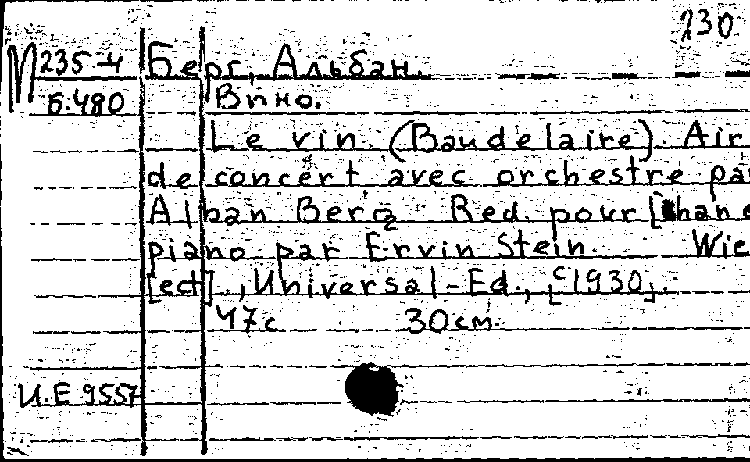 230
М 235-4 Берг, Альбан.
Б.480 Вино.
Le vin (Baudelaire). Air
de concert avec orchestre par
Alban Berg. Red. pour [chan
piano par Ervin Stein. Wie
[ect]., Universal-Ed., [c 1930].
47с 30см.
U.E 9557